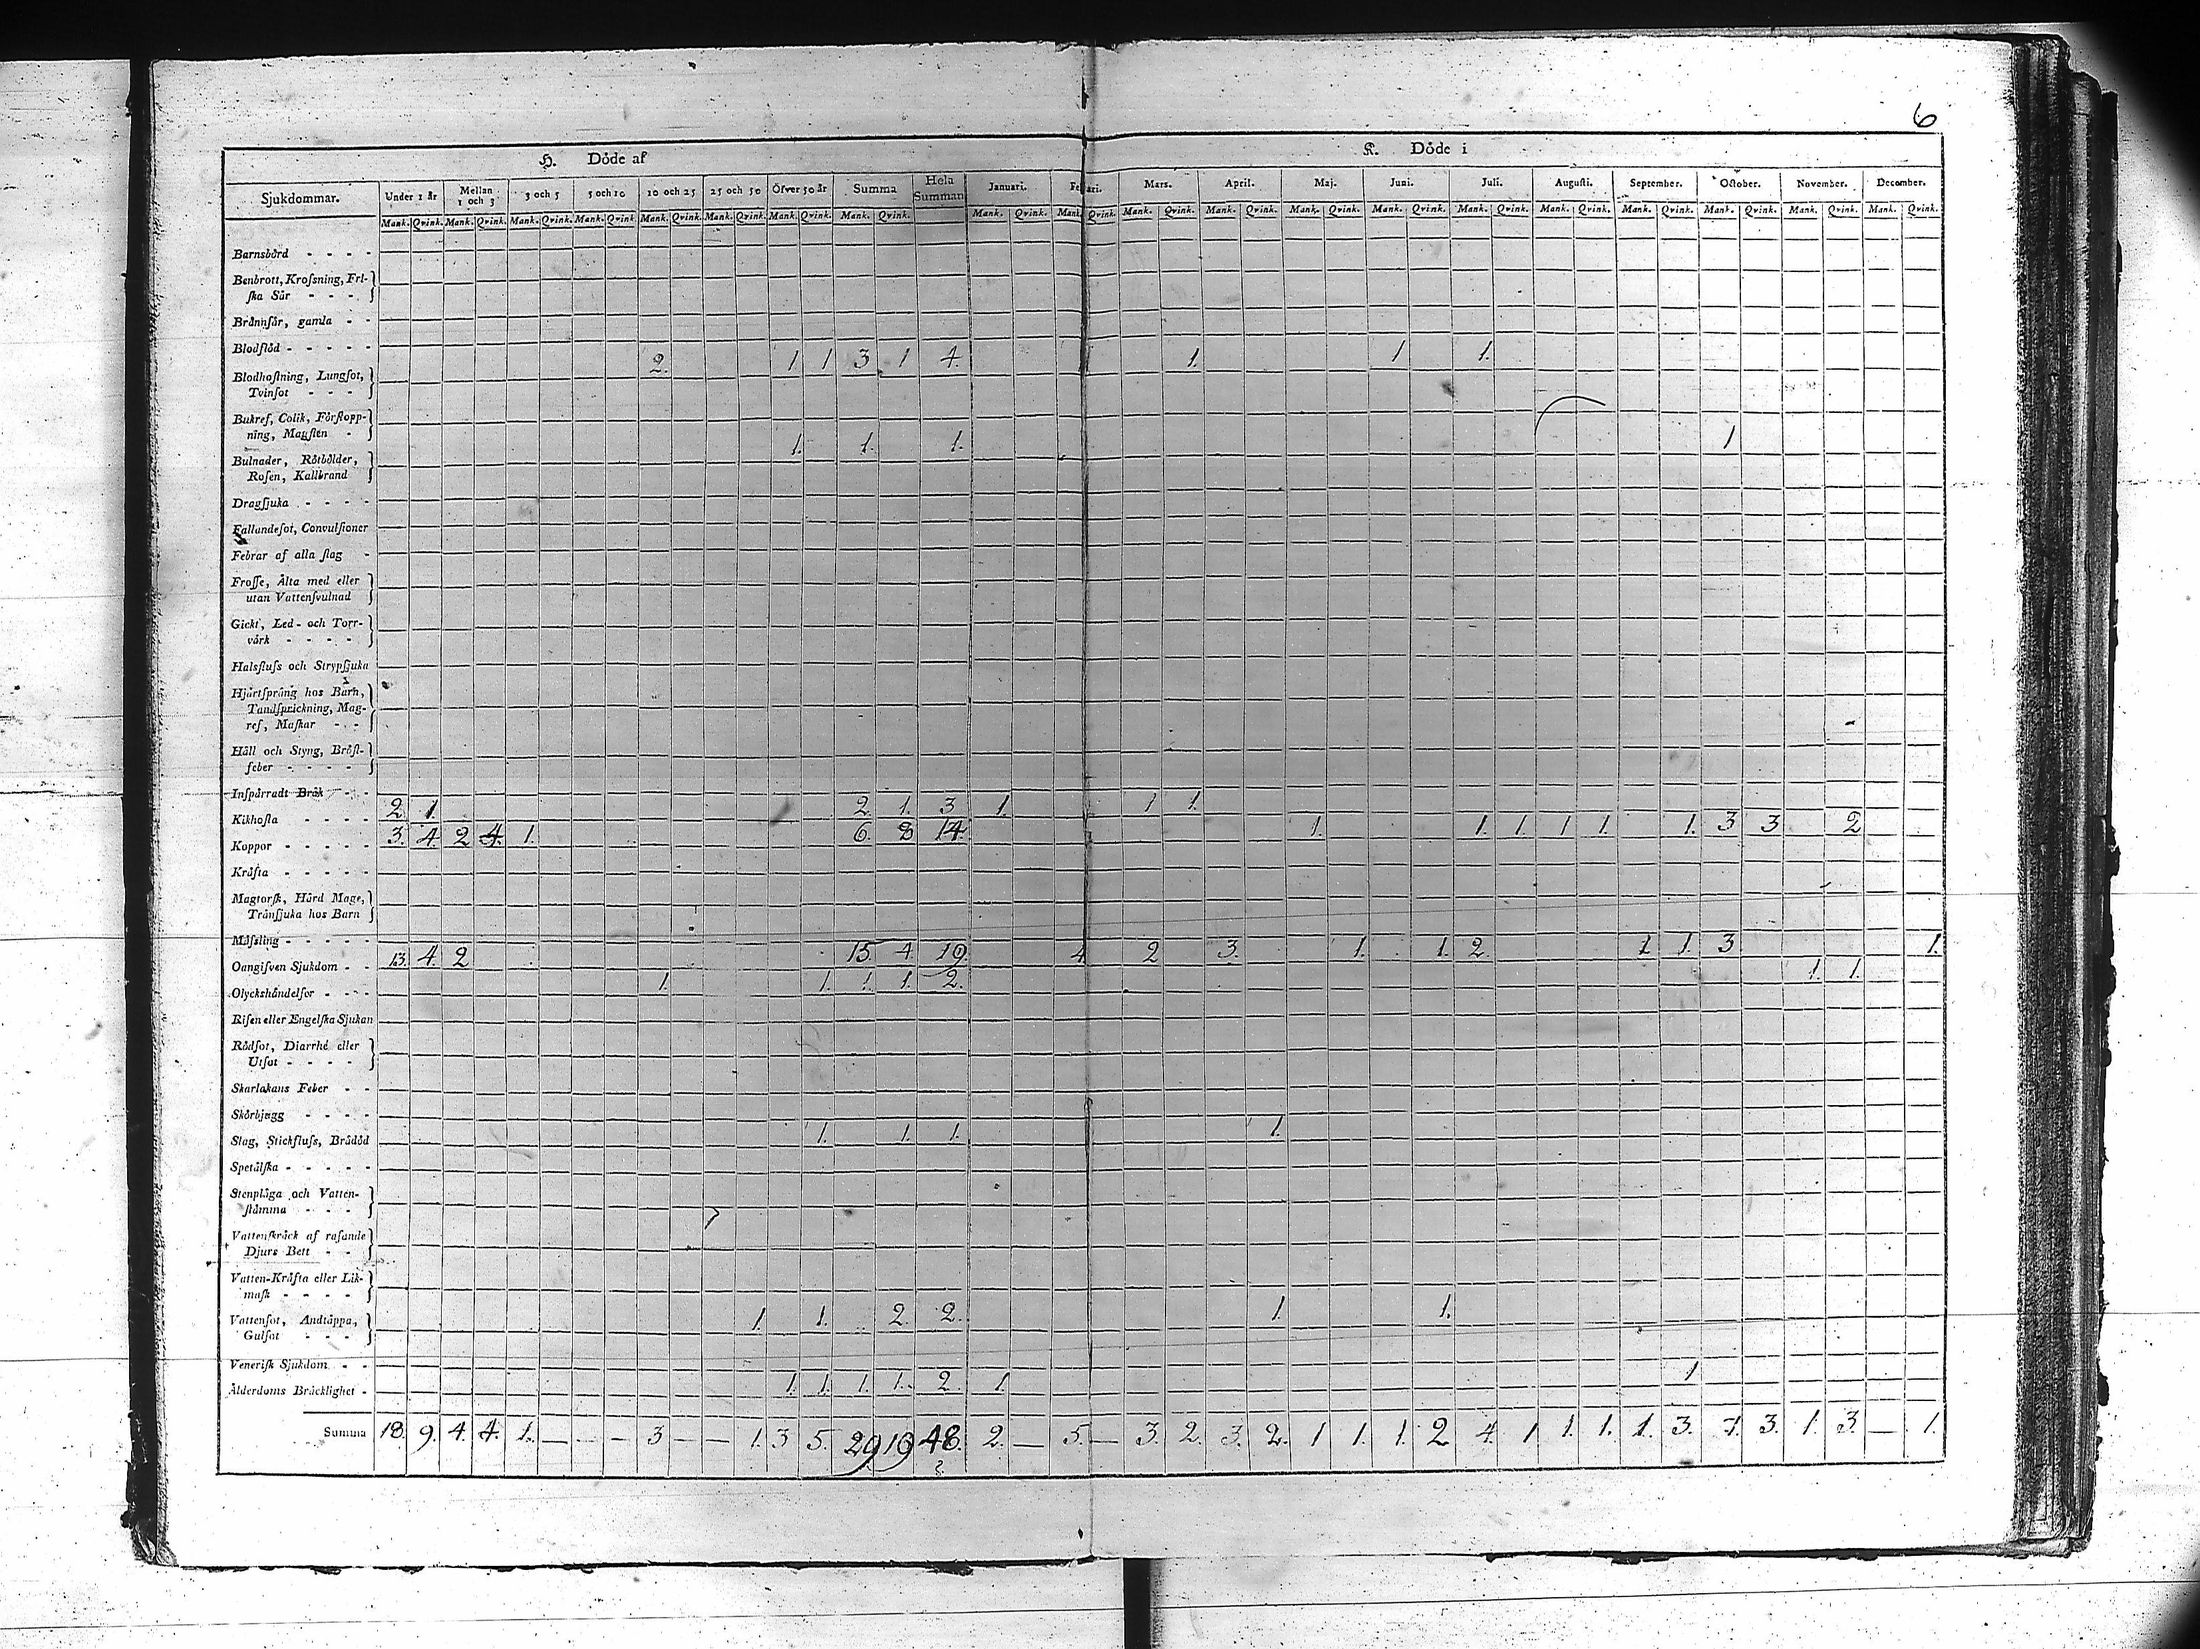 6
H. Döde af K. Döde i
Sjukdommar. Under 1 år Mellan 1 och 3 3 och 5 5 och 10 10 och 25 25 och 50 Öfver 50 år Summa Hela Summan Januari. Mars. April. Maj. Juni. Juli. Augusti. September. October. November. December.
Mank. Qvink. Mank. Qvink. Mank. Qvink. Mank. Qvink. Mank. Qvink. Mank. Qvink. Mank. Qvink. Mank. Qvink. Mank. Qvink. Mank. Qvink. Mank. Qvink. Mank. Qvink. Mank. Qvink. Mank. Qvink. Mank. Qvink. Mank. Qvink. Mank. Qvink. Mank. Qvink. Mank. Qvink. Mank. Qvink.
Barnsbörd - - - -
Benbrott, Krosning, Fri-
ska Sår - - -
Brännsår, gamla - -
Blodflöd - - - - -
2. 1 1 3 1 4. 1 1. 1 1.
Blodhostning, Lungsot,
Tvinsot - - -
Bukref, Colik, Förstopp-
ning, Magsten -
1. 1. 1. 1
Bulnader, Rötbölder,
Rosen, Kallbrand
Dragsjuka - - - -
Fallandesot, Convulsioner
Febrar af alla slag -
Frosse, Älta med eller
utan Vattensvulnad
Gickt, Led- och Torr-
värk - - - -
Halsfluss och Strypsjuka
Hjärtsprång hos Barn,
Tandsprickning, Mag-
ref, Maskar - -
Håll och Styng, Bröst-
feber - - - -
Inspärradt Bråk - -
2. 1. 2 1. 3 1. 1 1.
Kikhosta - - - -
3. 4. 2 4. 1. 6. 8 14. 1. 1. 1. 1 1. 1. 3 3 2
Koppor - - - - -
Kräfta - - - - -
Magtorsk, Hård Mage,
Tränsjuka hos Barn
Mässling - - - - -
13. 4. 2 15 4. 19. 4 2 3. 1. 1. 2. 1 1. 3 1.
Oangifven Sjukdom - -
1. 1. 1. 1. 2. 1. 1.
Olyckshändelser - - -
Risen eller Engelska Sjukan
Rödsot, Diarrhé eller
Utsot - - - -
Skarlakans Feber - -
Skörbjugg - - - -
1. 1. 1. 1.
Slag, Stickfluss, Brådöd
Spetälska - - - - -
Stenplåga och Vatten-
stämma - - -
Vattenskräck af rasande
Djurs Bett - -
Vatten-Kräfta eller Lik-
mask - - - -
1. 1. 2. 2. 1. 1.
Vattensot, Andtäppa,
Gulsot - - -
Venerisk Sjukdom - -
1. 1. 1. 1. 2. 1. 1
Ålderdoms Bräcklighet -
Summa 18. 9. 4. 4. 1. — - - 3 — — 1. 3 5. 29 19 48. 2. — 5. — 3. 2. 3. 2. 1 1. 1. 2 4. 1 1. 1. 1. 3. 7. 3. 1. 3. — 1.